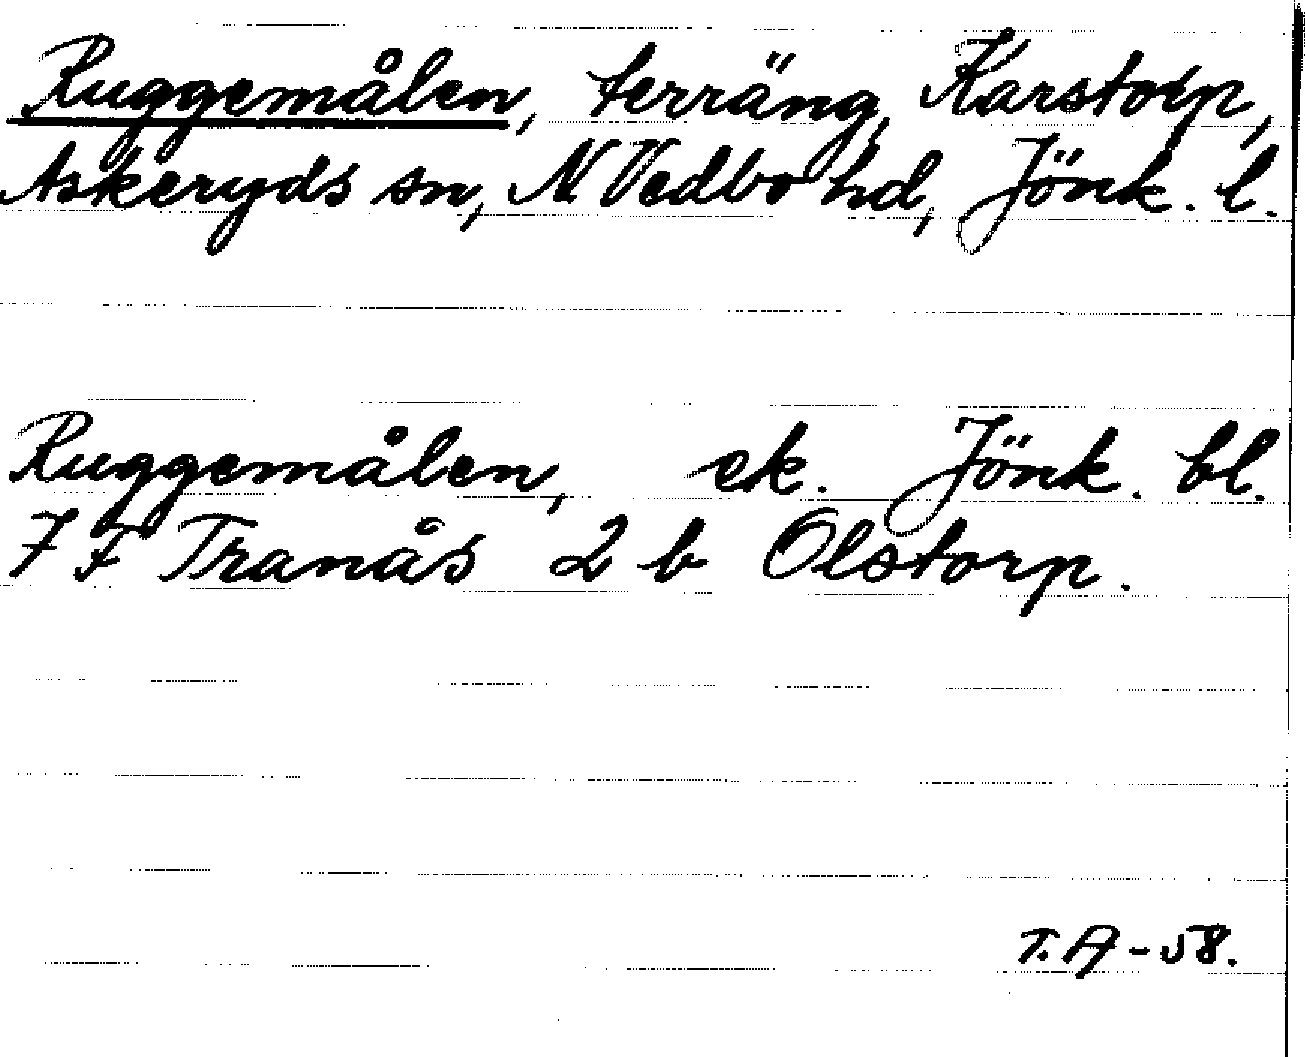 Ruggemålen, terräng, Karstorp,
Askeryds sn, N Vedbo hd, Jönk. l.
Ruggemålen, ek. Jönk. bl.
7 F Tranås 2 b Olstorp.
T. A -58.